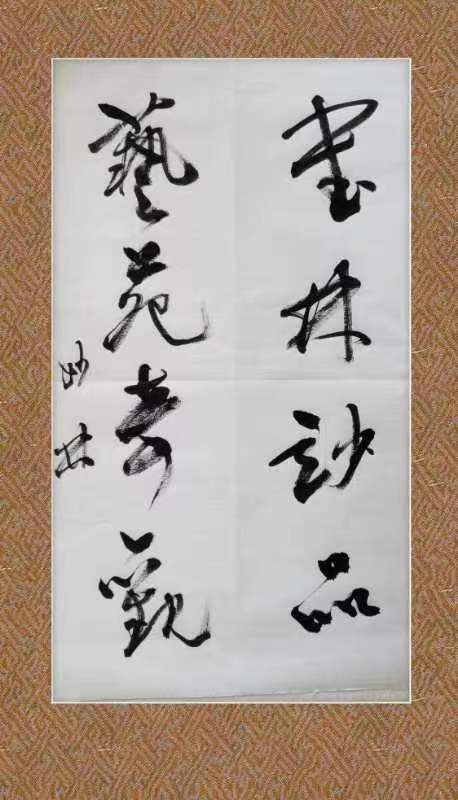 書林妙品
藝苑奇觀
妙林